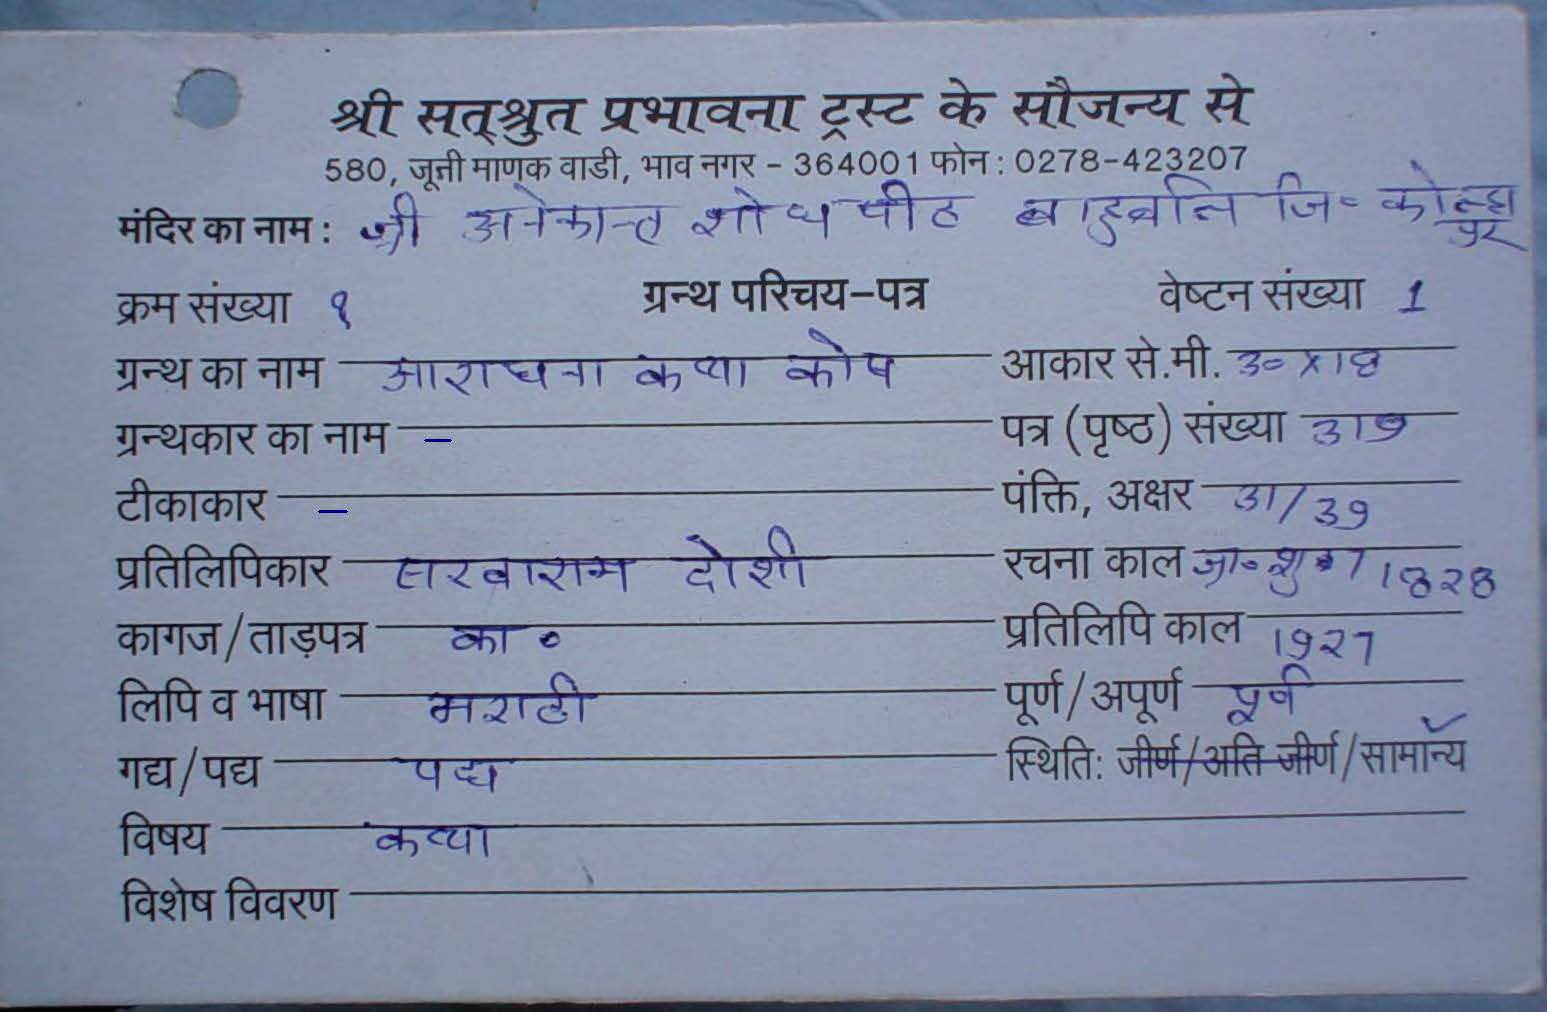 श्री सत्श्रुत प्रभावना ट्रस्ट के सौजन्य से
580, जूनी माणक वाडी, भाव नगर - 364001 फोन : 0278-423207
मंदिर का नाम : श्री अनेकान्त शोध पीठ बाहुबलि जि॰ कोल्हापुर
क्रम संख्या १ ग्रन्थ परिचय-पत्र वेष्टन संख्या 1
ग्रन्थ का नाम आराधना कथा कोष आकार से.मी. ३० X १८
ग्रन्थकार का नाम - पत्र (पृष्ठ) संख्या
टीकाकार - पंक्ति, अक्षर
प्रतिलिपिकार सखाराम दोशी रचना काल
कागज/ताड़पत्र का॰ प्रतिलिपि काल
लिपि व भाषा मराठी पूर्ण/अपूर्ण पूर्ण
गद्य/पद्य पद्य स्थिति: जीर्ण/अति जीर्ण/सामान्य
विषय कथा
विशेष विवरण